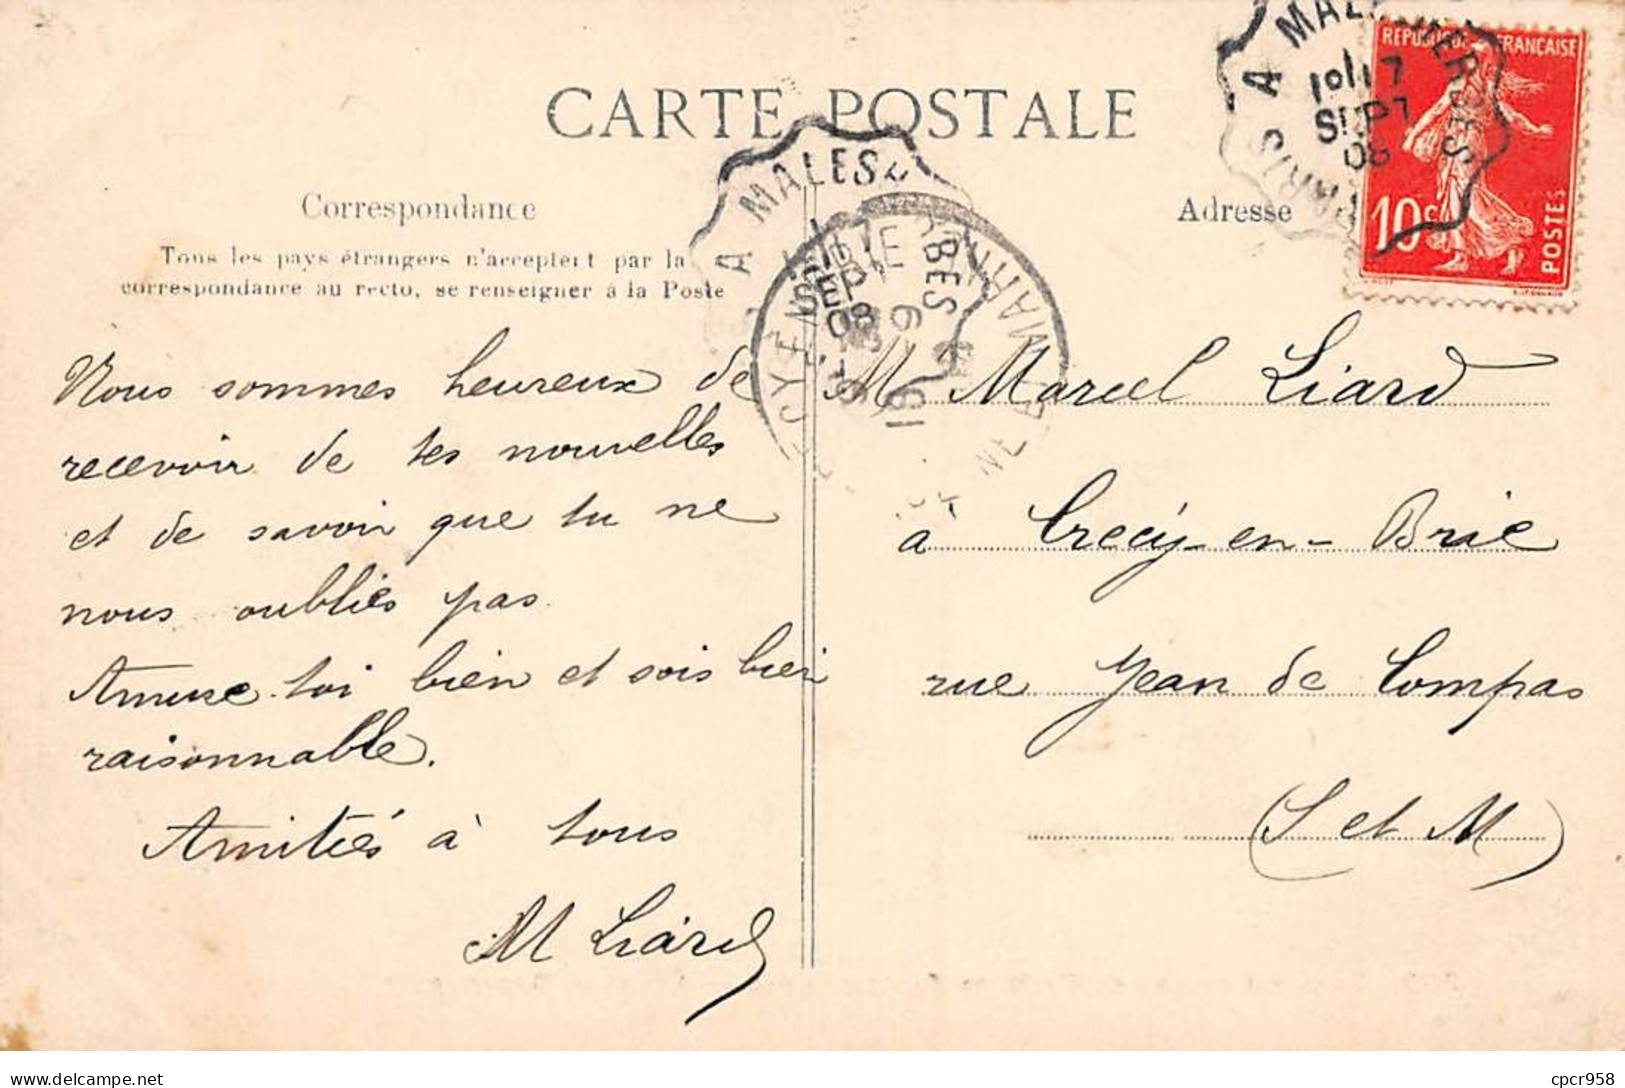 CARTE POSTALE
Correspondance
Tous les pays étrangers n'acceptent par la
correspondance au recto, se renseigner à la Poste
Nous sommes heureux de
recevoir de tes nouvelles
et de savoir que tu ne
nous oublies pas.
Amuse-toi bien et sois bien
raisonnable.
Amitiés à tous
M Liard
Adresse
M Marcel Liard
à Crécy-en-Brie
rue Jean de Compas
(S et M)
REPUBLIQUE FRANÇAISE
10c
POSTES
PARIS A MALESHERBES
17
SEPT
08
A MALESHERBES
SEPT
08
CRECY EN BRIE
SEINE ET MARNE
cpcr958